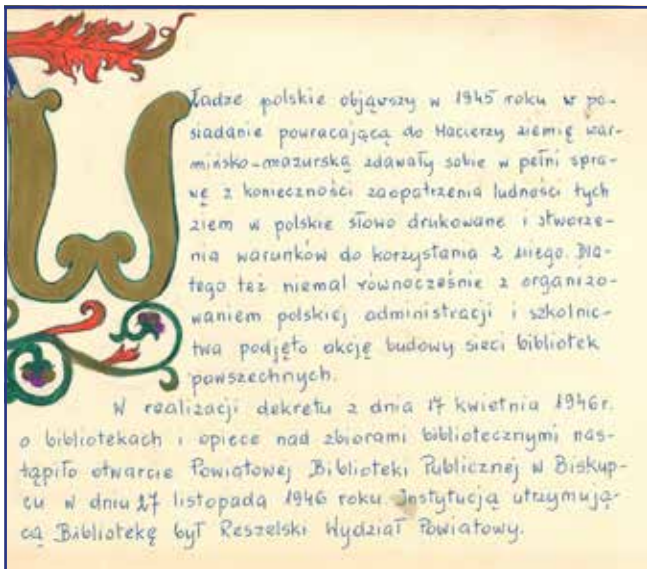 Władze polskie objąwszy w 1945 roku w po-
siadanie powracającą do Macierzy ziemię war-
mińsko-mazurską zdawały sobie w pełni spra-
wę z konieczności zaopatrzenia ludności tych
ziem w polskie słowo drukowane i stworze-
nia warunków do korzystania z niego. Dla-
tego też niemal równocześnie z organizo-
waniem polskiej administracji i szkolnic-
twa podjęto akcję budowy sieci bibliotek
powszechnych.
W realizacji dekretu z dnia 17 kwietnia 1946r.
o bibliotekach i opiece nad zbiorami bibliotecznymi nas-
tąpiło otwarcie Powiatowej Biblioteki Publicznej w Biskup-
cu w dniu 27 listopada 1946 roku. Instytucją utrzymują-
cą Bibliotekę był Reszelski Wydział Powiatowy.